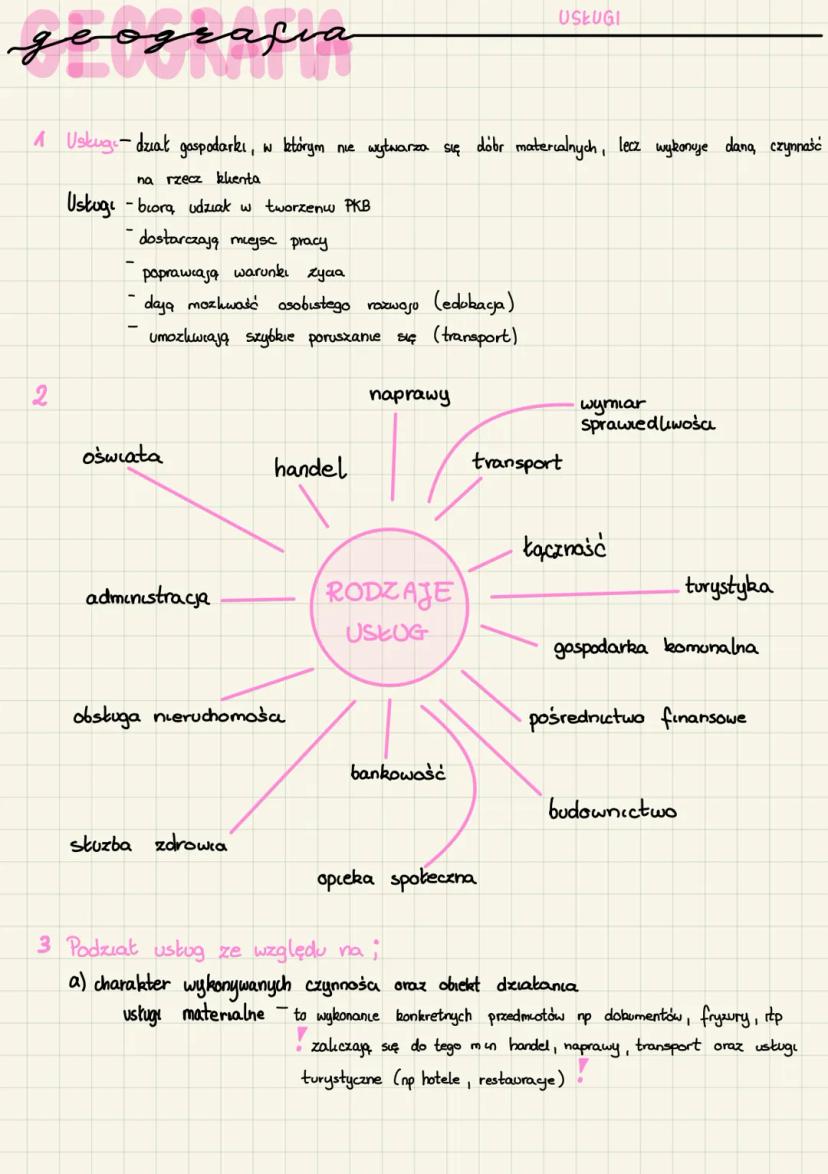 USŁUGI
GEOGRAFIA
geografia
1 Usługi - dział gospodarki, w którym nie wytwarza się dóbr materialnych, lecz wykonuje daną czynność
na rzecz klienta
Usługi - biorą udział w tworzeniu PKB
- dostarczają miejsc pracy
- poprawiają warunki życia
- dają możliwość osobistego rozwoju (edukacja)
- umożliwiają szybkie poruszanie się (transport)
2
naprawy
wymiar
sprawiedliwości
oświata
handel
transport
łączność
administracja
RODZAJE
USŁUG
turystyka
gospodarka komunalna
obsługa nieruchomości
pośrednictwo finansowe
bankowość
budownictwo
służba zdrowia
opieka społeczna
3 Podział usług ze względu na ;
a) charakter wykonywanych czynności oraz obiekt działania
usługi materialne - to wykonanie konkretnych przedmiotów np dokumentów, fryzury, itp
! zaliczają się do tego min handel, naprawy, transport oraz usługi
turystyczne (np hotele, restauracje) !